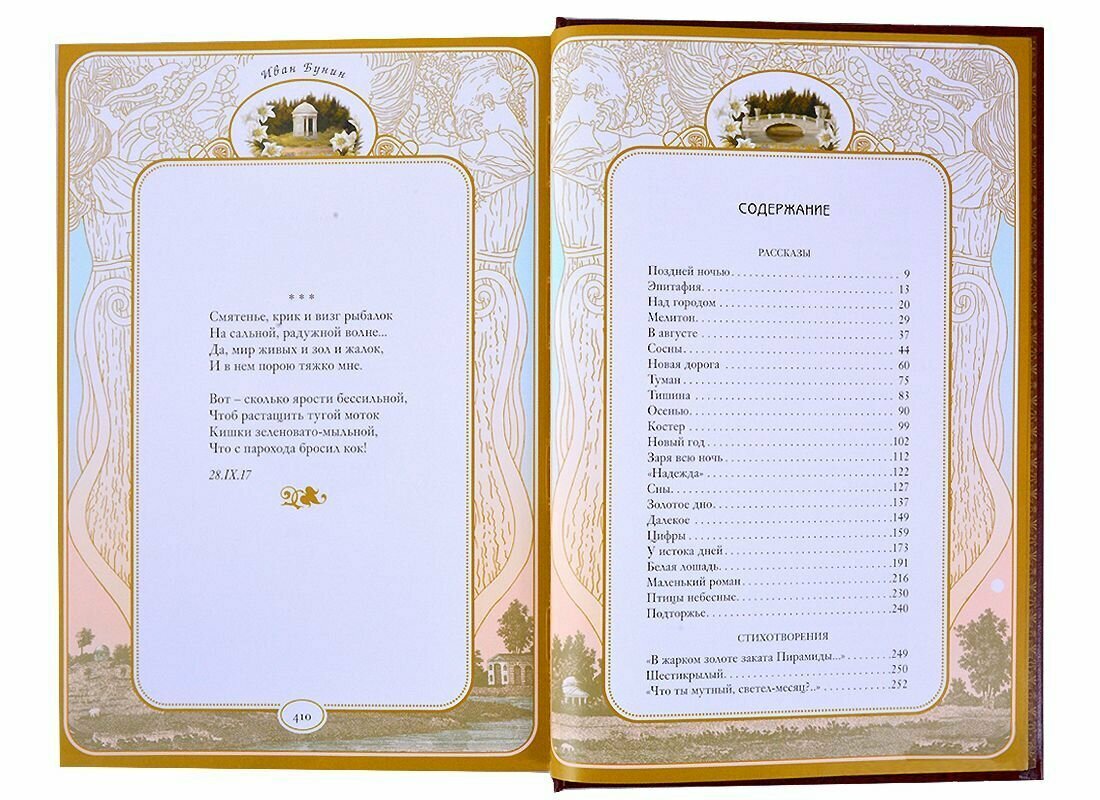 Иван Бунин
* * *
Смятенье, крик и визг рыбалок
На сальной, радужной волне...
Да, мир живых и зол и жалок,
И в нем порою тяжко мне.
Вот – сколько ярости бессильной,
Чтоб растащить тугой моток
Кишки зеленовато-мыльной,
Что с парохода бросил кок!
28.IX.17
410
СОДЕРЖАНИЕ
РАССКАЗЫ
Поздней ночью 9
Эпитафия 13
Над городом 20
Мелитон 29
В августе 37
Сосны 44
Новая дорога 60
Туман 75
Тишина 83
Осенью 90
Костер 99
Новый год 102
Заря всю ночь 112
«Надежда» 122
Сны 127
Золотое дно 137
Далекое 149
Цифры 159
У истока дней 173
Белая лошадь 191
Маленький роман 216
Птицы небесные 230
Подторжье 240
СТИХОТВОРЕНИЯ
«В жарком золоте заката Пирамиды...» 249
Шестикрылый 250
«Что ты мутный, светел-месяц?..» 252